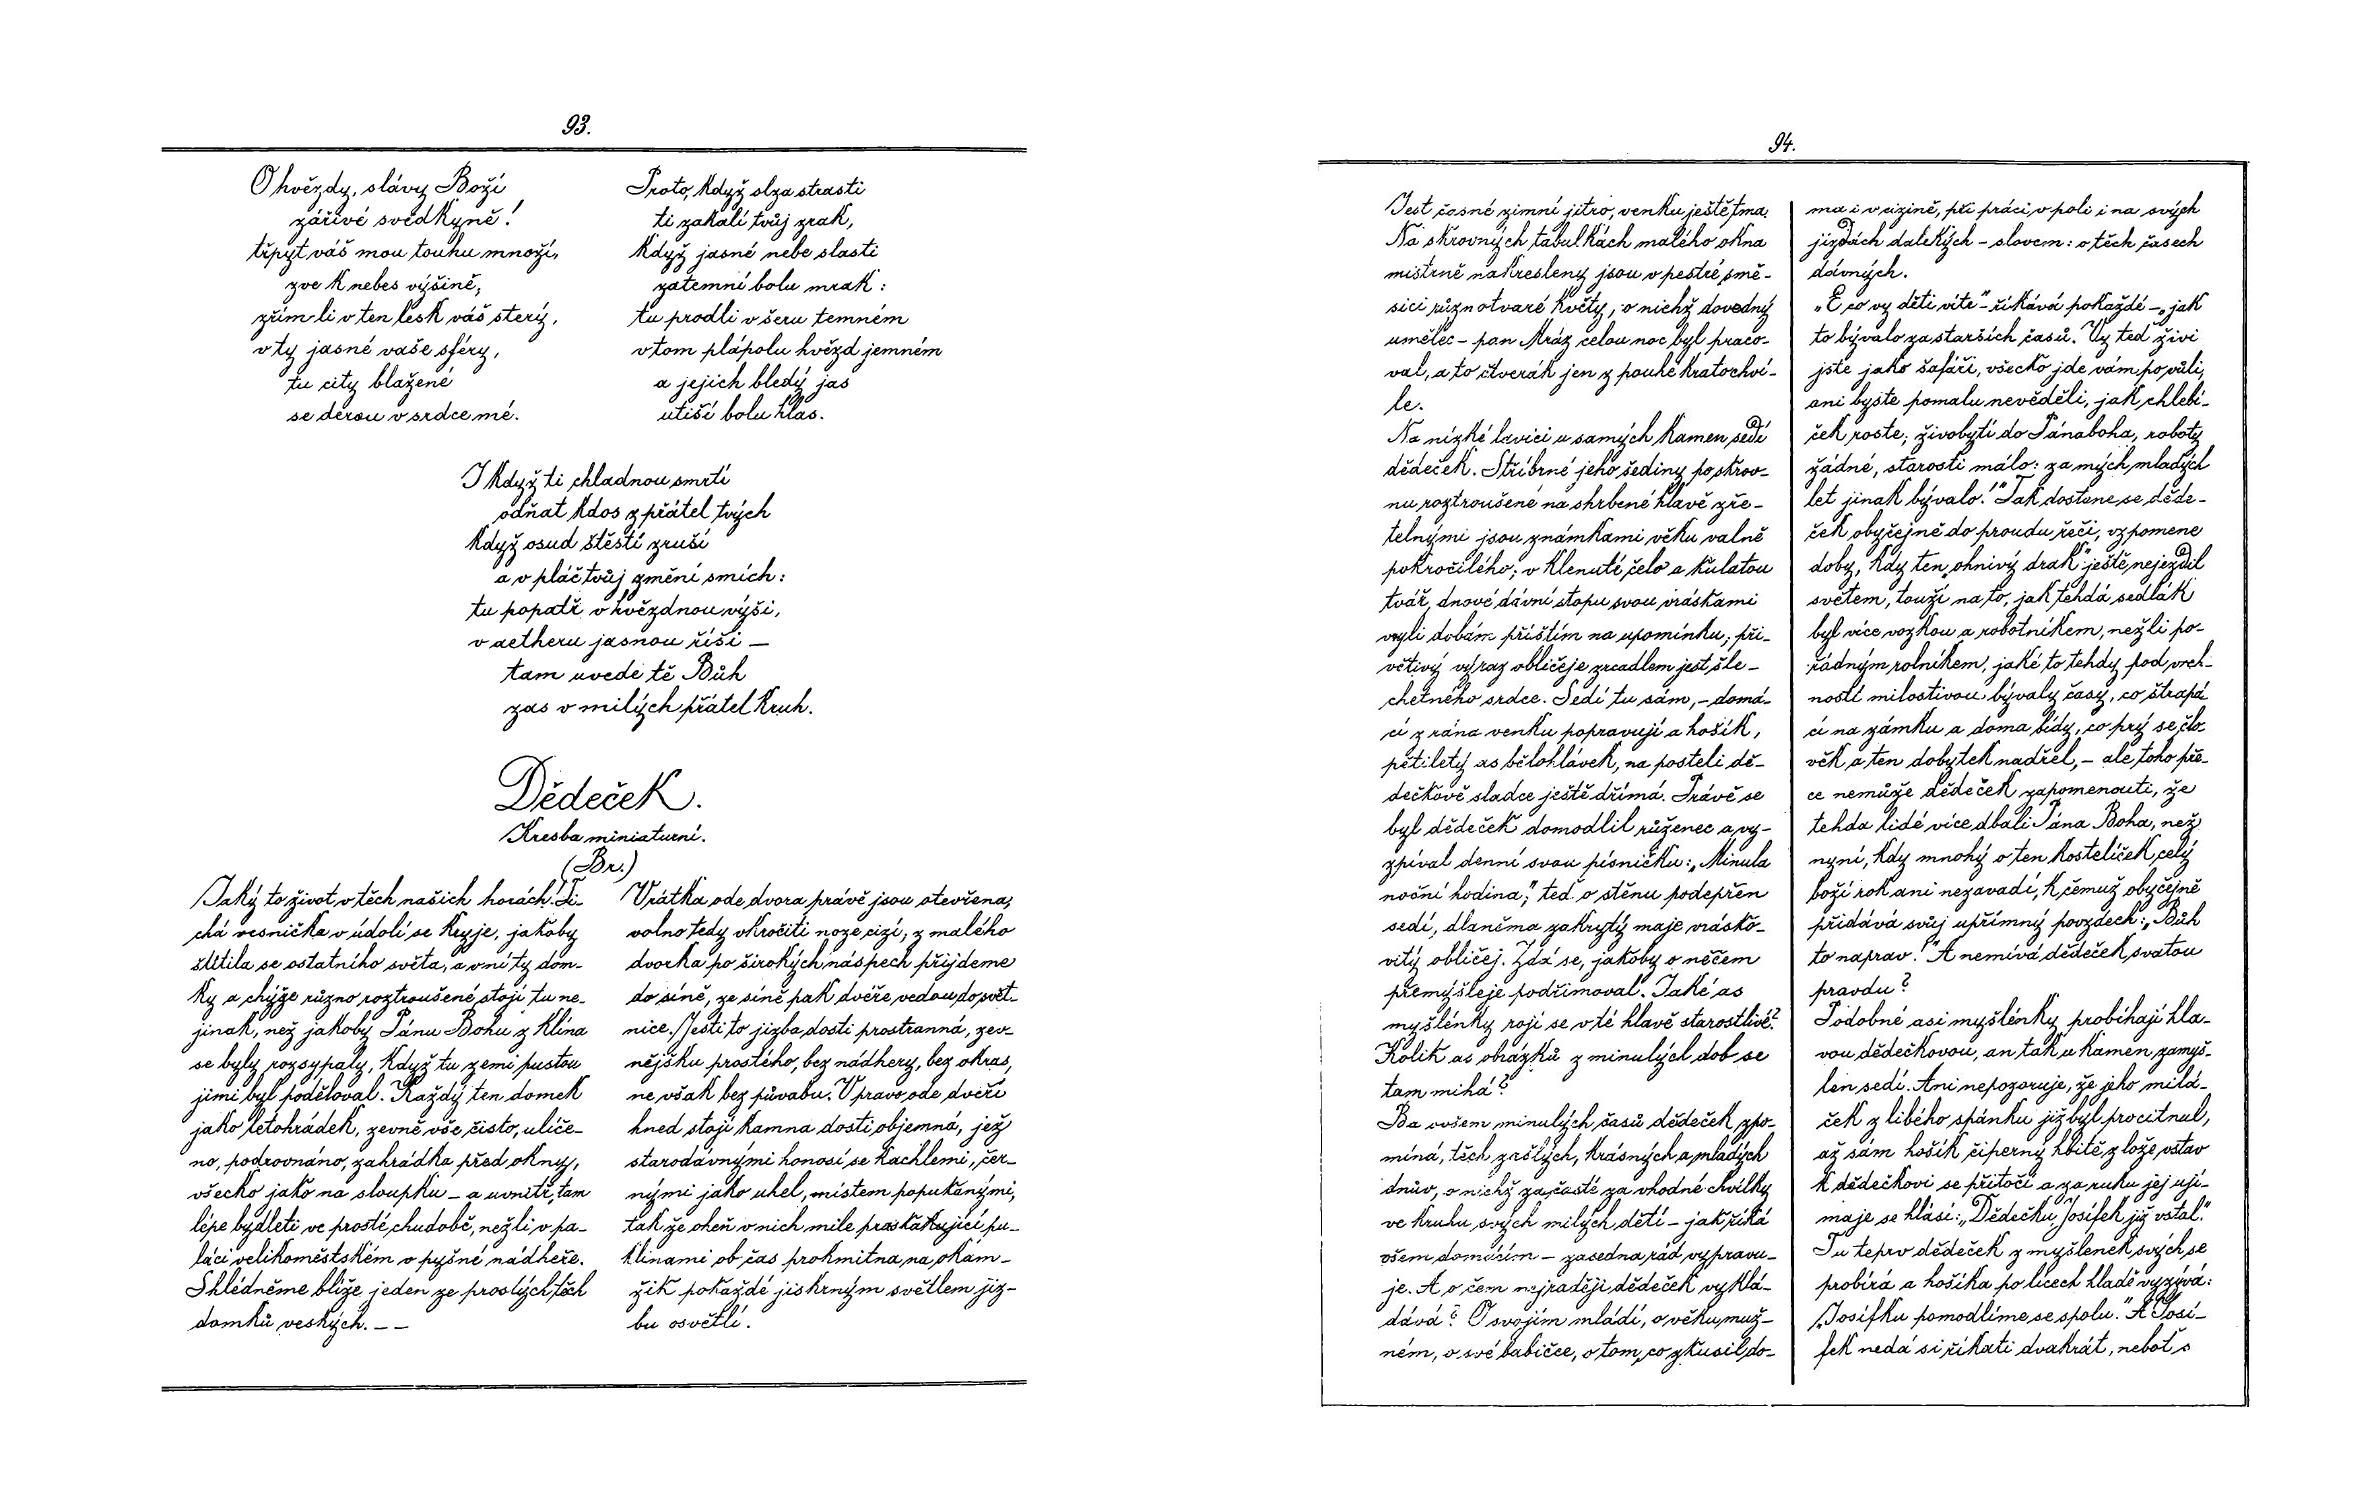 93.
O hvězdy, slávy Boží
zářivé svědkyně!
třpyt váš mou touhu množí,
zve k nebes výšině;
zřím-li v ten lesk váš sterý,
v ty jasné vaše sféry,
tu city blažené
se derou v srdce mé.
Proto, když slza strasti
ti zakalí tvůj zrak,
když jasné nebe slasti
zatemní bolu mrak:
tu prodli v šeru temném
v tom plápolu hvězd jemném
a jejich bledý jas
utiší bolu hlas.
I když ti chladnou smrtí
odňat kdos z přátel tvých
když osud štěstí zruší
a v pláč tvůj změní smích:
tu popatř v hvězdnou výši,
v aetheru jasnou říši —
tam uvede tě Bůh
zas v milých přátel kruh.
Dědeček.
Kresba miniaturní.
(Br.)
Jaký to život v těch našich horách! Ti-
chá vesnička v údolí se kryje, jakoby
štítila se ostatního světa, a v ní ty dom-
ky a chýže různo roztroušené stojí tu ne-
jinak, než jakoby Pánu Bohu z klína
se byly rozsypaly, když tu zemi pustou
jimi byl poděloval. Každý ten domek
jako letohrádek, zevně vše čisto, ulíče-
no, podrovnáno, zahrádka před okny,
všecko jako na sloupku – a uvnitř, tam
lépe bydleti ve prosté chudobě, nežli v pa-
láci velikoměstském o pyšné nádheře.
Shlédněme blíže jeden ze prostých těch
domků veských. – –
Vrátka ode dvora právě jsou otevřena,
volno tedy vkročiti noze cizí; z malého
dvorka po širokých náspech přijdeme
do síně, ze síně pak dvéře vedou do svět-
nice. Jesti to jizba dosti prostranná, zev-
nějšku prostého, bez nádhery, bez okras,
ne však bez půvabu. V pravo ode dveří
hned stojí kamna dosti objemná, jež
starodávnými honosí se kachlemi, čer-
nými jako uhel, místem popukanými,
tak že oheň v nich mile praskakující pu-
klinami ob čas prokmitna na okam-
žik pokaždé jiskrným světlem jiz-
bu osvětlí.
94.
Jest časné zimní jitro, venku ještě tma.
Na skrovných tabulkách malého okna
mistrně nakresleny jsou v pestré smě-
sici různotvaré květy, o nichž dovedný
umělec – pan Mráz celou noc byl praco-
val, a to čtverák jen z pouhé kratochví-
le.
Na nízké lavici u samých kamen sedí
dědeček. Stříbrné jeho šediny po skrov-
nu roztroušené na shrbené hlavě zře-
telnými jsou známkami věku valně
pokročilého; v klenuté čelo a kulatou
tvář dnové dávní stopu svou vráskami
vryli dobám příštím na upomínku; pří-
větivý výraz obličeje zrcadlem jest šle-
chetného srdce. Sedí tu sám, – domá-
cí z rána venku popravují a hošík,
pětiletý as bělohlávek, na posteli dě-
dečkově sladce ještě dřímá. Právě se
byl dědeček domodlil růženec a vy-
zpíval denní svou písničku: „Minula
noční hodina," teď o stěnu podepřen
sedí, dlaněma zakrytý maje vrásko-
vitý obličej. Zdá se, jakoby o něčem
přemýšleje podřimoval. Jaké as
myšlénky rojí se v té hlavě starostlivé?
Kolik as obrázků z minulých dob se
tam mihá?
Ba ovšem minulých časů dědeček zpo-
míná, těch zašlých, krásných a mladých
dnův, o nichž za časté za vhodné chvilky
ve kruhu svých milých dětí – jak říká
všem domácím – zasedna rád vypravu-
je. A o čem nejraději dědeček vyklá-
dává? O svojím mládí, o věku muž-
ném, o své babičce, o tom, co zkusil do-
ma i v cizině, při práci v poli i na svých
jízdách dalekých – slovem: o těch časech
dávných.
„E co vy děti víte" – říkává pokaždé – „jak
to bývalo za starších časů. Vy teď živi
jste jako šafáři, všecko jde vám po vůli,
ani byste pomalu nevěděli, jak chlebí-
ček roste; živobytí do Pánaboha, roboty
žádné, starosti málo: za mých mladých
let jinak bývalo!" Tak dostane se děde-
ček obyčejně do proudu řeči, vzpomene
doby, kdy ten „ohnivý drak" ještě nejezdil
světem, touží na to, jak tehdá sedlák
byl více vozkou a robotníkem, nežli po-
řádným rolníkem, jaké to tehdy pod vrch-
ností milostivou bývaly časy, co štrapá-
cí na zámku a doma bídy, co prý se člo-
věk a ten dobytek nadřel, – ale toho pře-
ce nemůže dědeček zapomenouti, že
tehda lidé více dbali Pána Boha, než
nyní, kdy mnohý o ten kostelíček celý
boží rok ani nezavadí, k čemuž obyčejně
přidává svůj upřímný povzdech: „Bůh
to naprav!" A nemívá dědeček svatou
pravdu?
Podobné asi myšlénky probíhají hla-
vou dědečkovou, an tak u kamen zamyš-
len sedí. Ani nepozoruje, že jeho milá-
ček z libého spánku již byl procitnul,
až sám hošík čiperný hbitě z lože vstav
k dědečkovi se přitočí a za ruku jej ují-
maje se hlásí: „Dědečku, Josífek již vstal."
Tu teprv dědeček z myšlenek svých se
probírá a hošíka po lících hladě vyzývá:
„Josífku pomodlíme se spolu." A Josí-
fek nedá si říkati dvakrát, neboť s